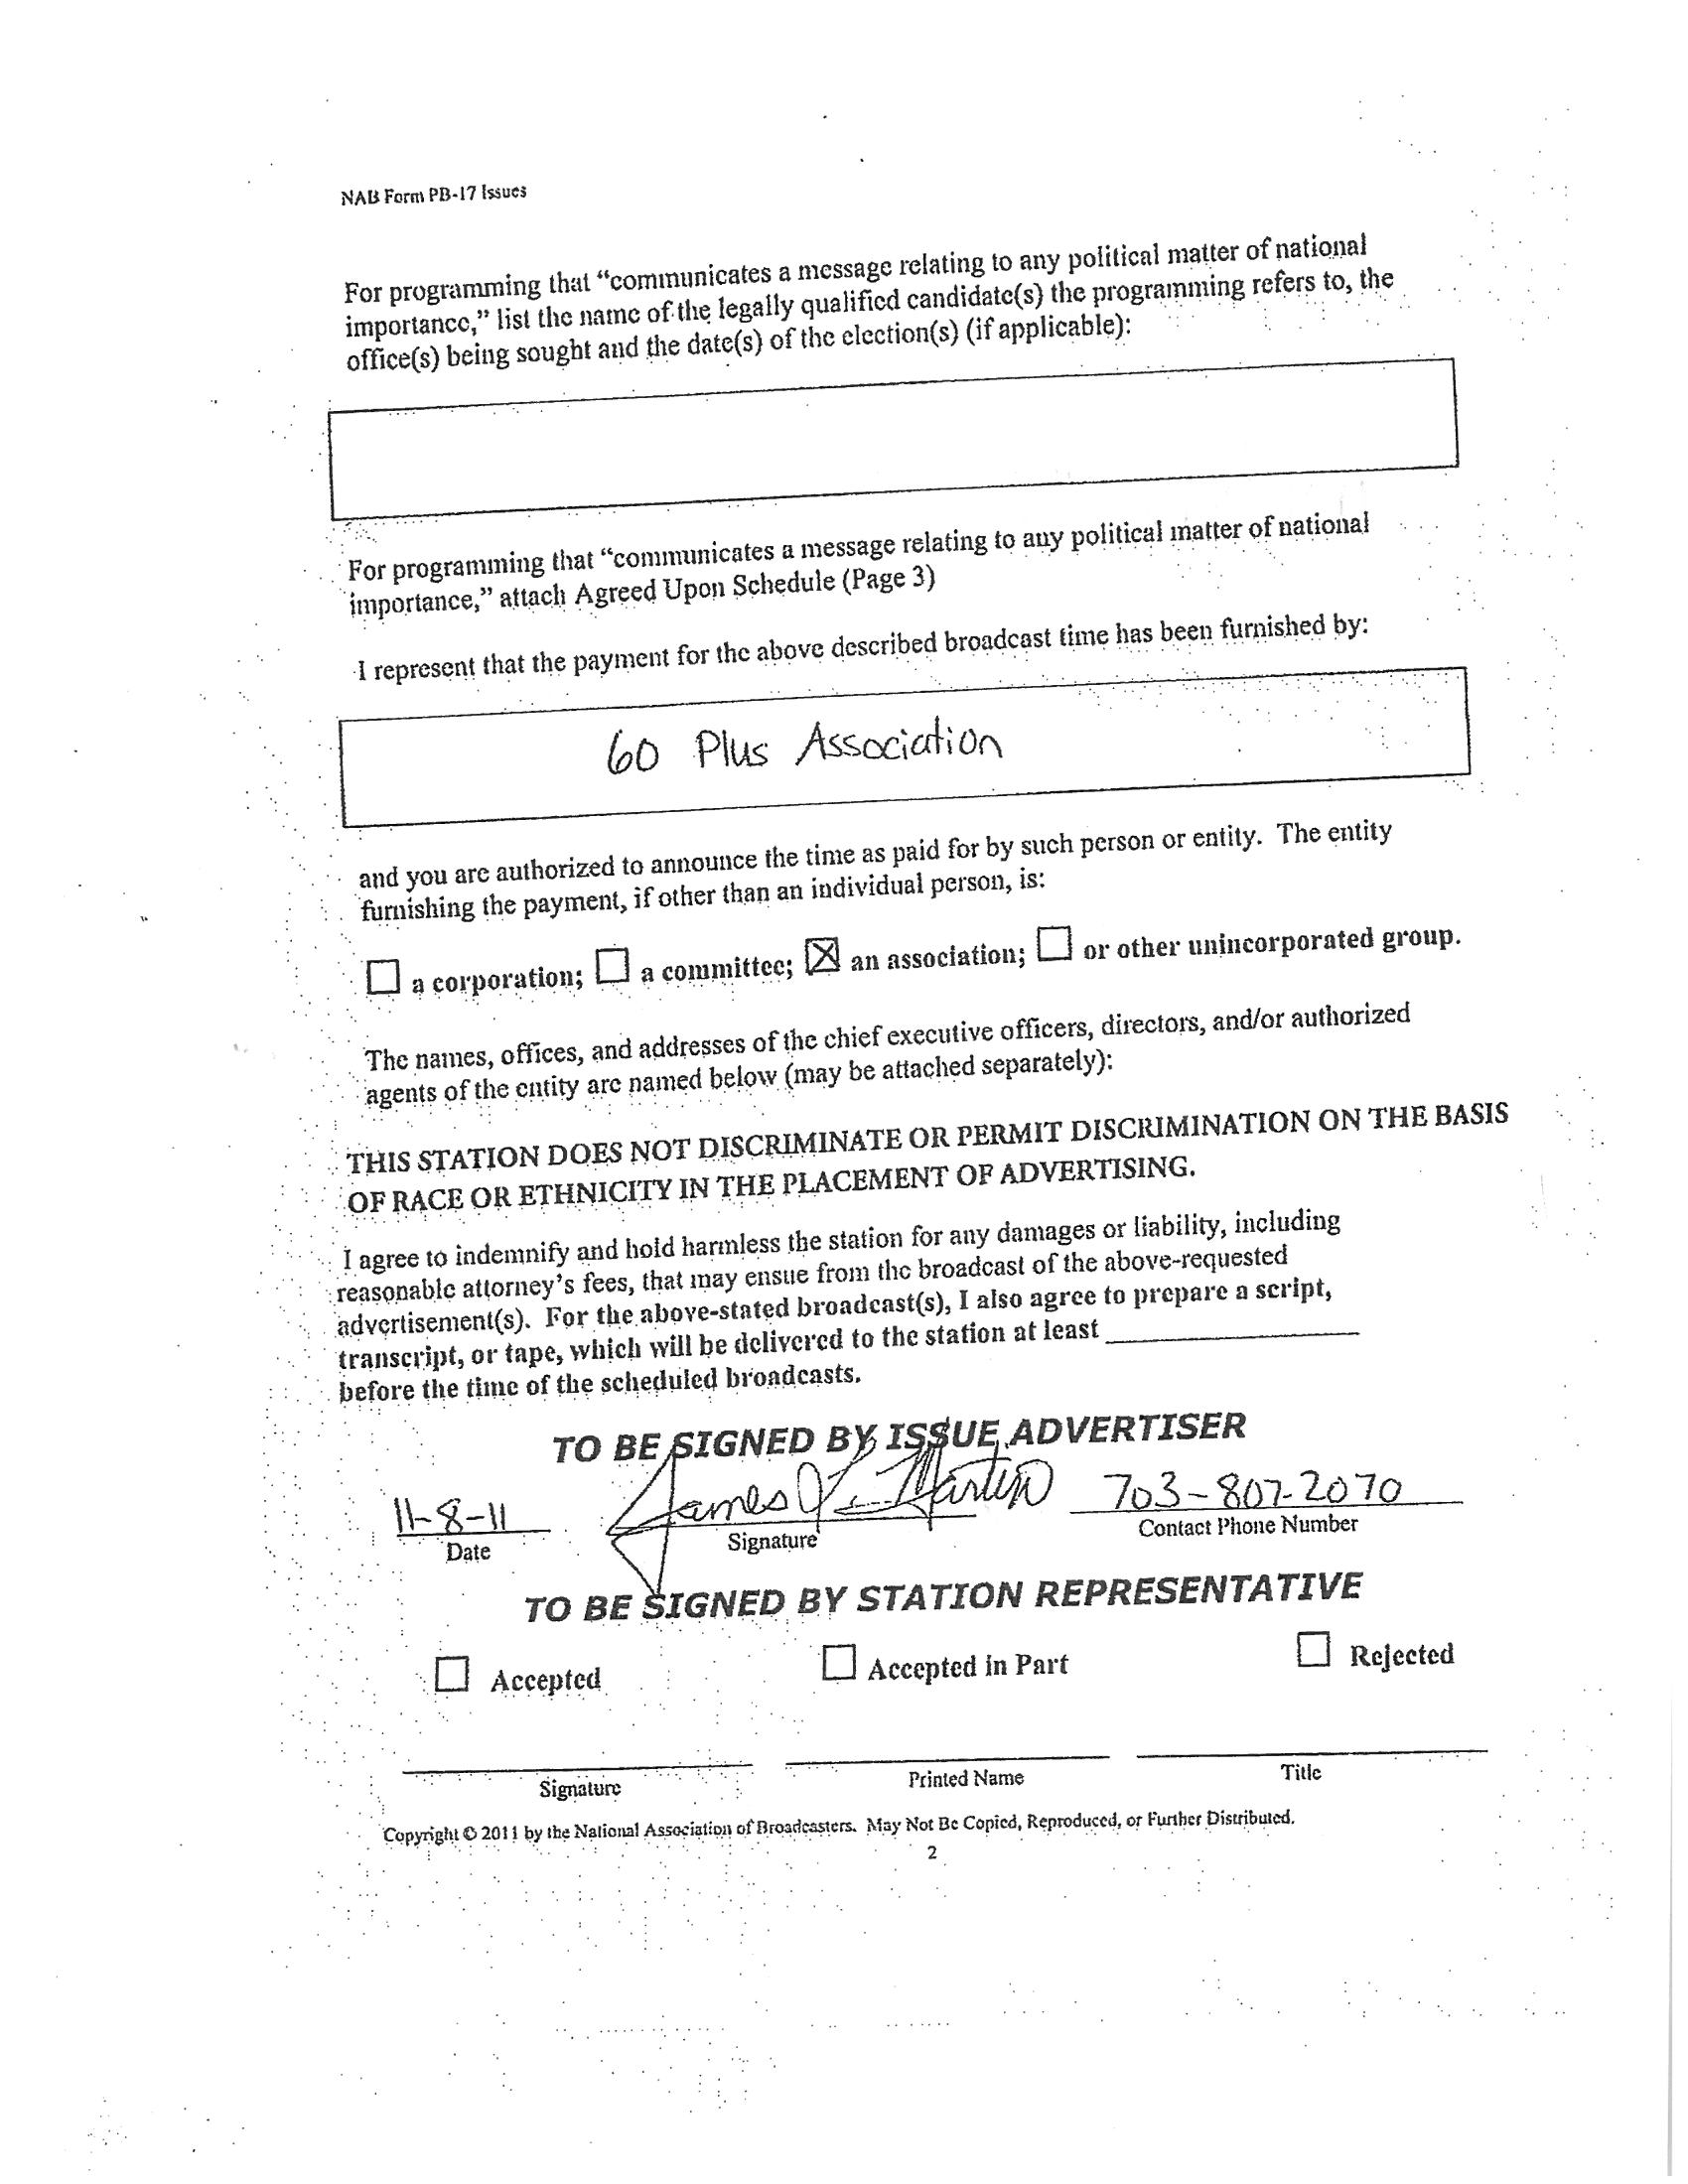 NAB Form PB-17 Issues
For programming that “communicates a message relating to any political matter of national
importance,” list the name of the legally qualified candidate(s) the programming refers to, the
office(s) being sought and the date(s) of the election(s) (if applicable):
For programming that “communicates a message relating to any political matter of national
importance,” attach Agreed Upon Schedule (Page 3)
I represent that the payment for the above described broadcast time has been furnished by:
60 Plus Association
and you are authorized to announce the time as paid for by such person or entity. The entity
furnishing the payment, if other than an individual person, is:
☐ a corporation; ☐ a committee; ☒ an association; ☐ or other unincorporated group.
The names, offices, and addresses of the chief executive officers, directors, and/or authorized
agents of the entity are named below (may be attached separately):
THIS STATION DOES NOT DISCRIMINATE OR PERMIT DISCRIMINATION ON THE BASIS
OF RACE OR ETHNICITY IN THE PLACEMENT OF ADVERTISING.
I agree to indemnify and hold harmless the station for any damages or liability, including
reasonable attorney’s fees, that may ensue from the broadcast of the above-requested
advertisement(s). For the above-stated broadcast(s), I also agree to prepare a script,
transcript, or tape, which will be delivered to the station at least
before the time of the scheduled broadcasts.
TO BE SIGNED BY ISSUE ADVERTISER
11-8-11 James L. Martin 703-807-2070
Date Signature Contact Phone Number
TO BE SIGNED BY STATION REPRESENTATIVE
☐ Accepted ☐ Accepted in Part ☐ Rejected
Signature Printed Name Title
Copyright © 2011 by the National Association of Broadcasters. May Not Be Copied, Reproduced, or Further Distributed.
2